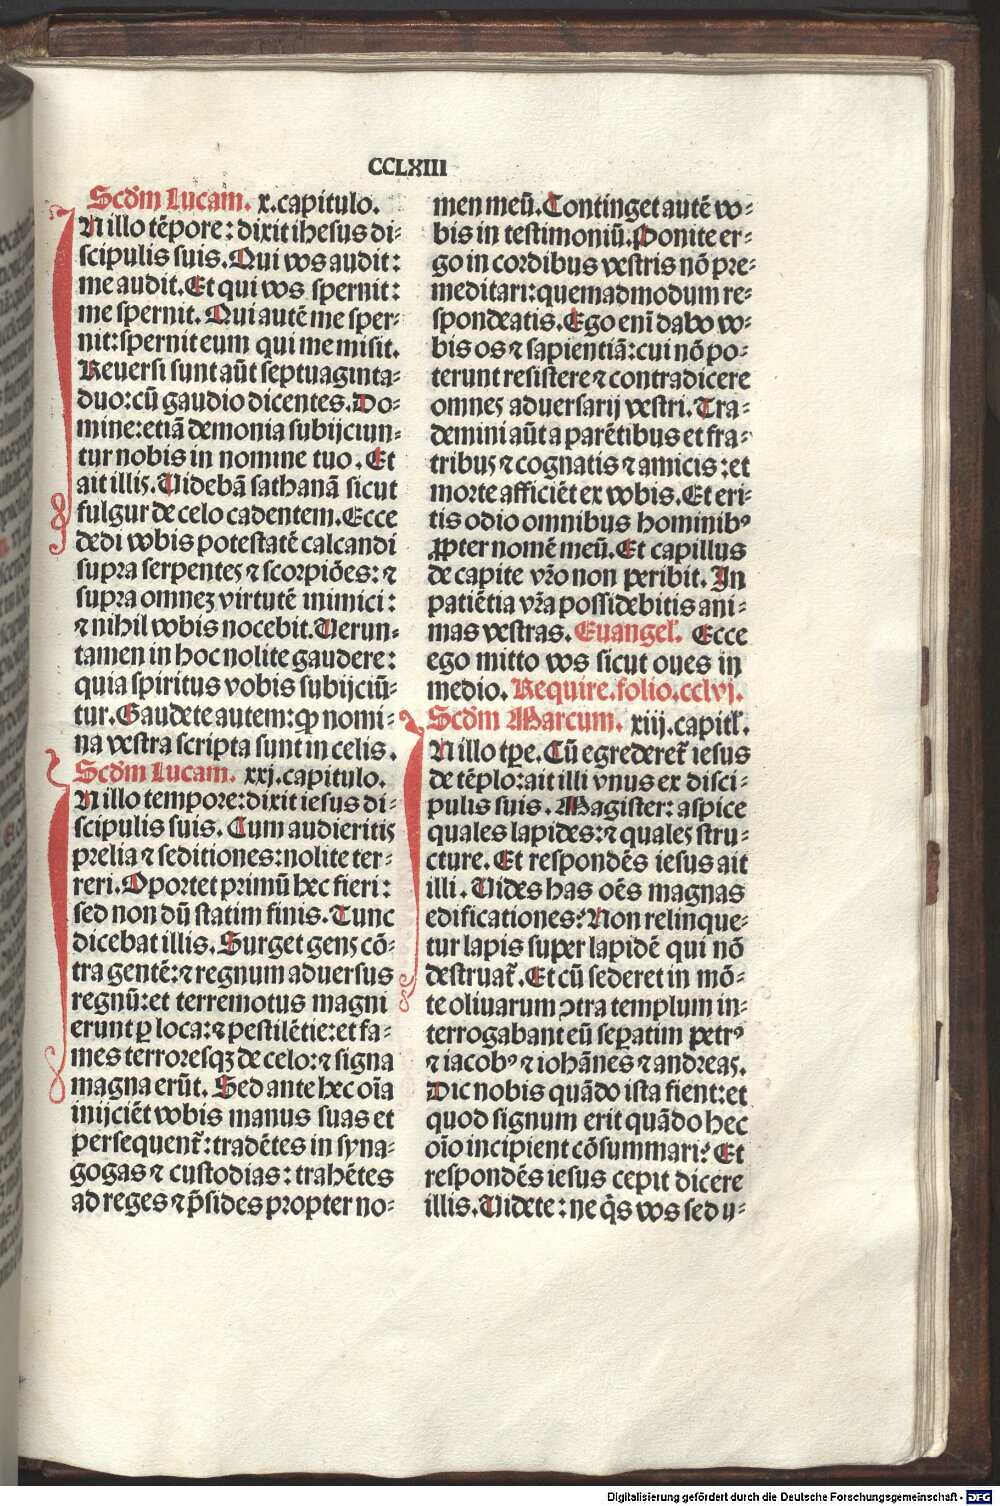 CCLXIII
Scdm̄ Lucam. x. capitulo.
IN illo tēpore: dixit ihesus di⸗
scipulis suis. Qui vos audit:
me audit. Et qui vos spernit:
me spernit. Qui autē me sper⸗
nit: spernit eum qui me misit.
Reuersi sunt aūt septuaginta⸗
duo: cū gaudio dicentes. Do⸗
mine: etiā demonia subijciun⸗
tur nobis in nomine tuo. Et
ait illis. Videbā sathanā sicut
fulgur de celo cadentem. Ecce
dedi vobis potestatē calcandi
supra serpentes ⁊ scorpiões: ⁊
supra omnez virtutē inimici:
⁊ nihil vobis nocebit. Verun⸗
tamen in hoc nolite gaudere:
quia spiritus vobis subijciū⸗
tur. Gaudete autem: ꝙ nomi⸗
na vestra scripta sunt in celis.
Scdm̄ Lucam. xxj. capitulo.
IN illo tempore: dixit iesus di⸗
scipulis suis. Cum audieritis
prelia ⁊ seditiones: nolite ter⸗
reri. Oportet primū hec fieri:
sed non dū statim finis. Tunc
dicebat illis. Surget gens cō⸗
tra gentē: ⁊ regnum aduersus
regnū: et terremotus magni
erunt ꝑ loca: ⁊ pestilētie: et fa⸗
mes terroresqꝫ de celo: ⁊ signa
magna erūt. Sed ante hec oīa
inijciēt vobis manus suas et
persequent̄: tradētes in syna⸗
gogas ⁊ custodias: trahētes
ad reges ⁊ p̄sides propter no⸗
men meū. Continget autē vo⸗
bis in testimoniū. Ponite er⸗
go in cordibus vestris nō pre⸗
meditari: quemadmodum re⸗
spondeatis. Ego enī dabo vo⸗
bis os ⁊ sapientiā: cui nō po⸗
terunt resistere ⁊ contradicere
omnes aduersarij vestri. Tra⸗
demini aūt a parētibus et fra⸗
tribus ⁊ cognatis ⁊ amicis: et
morte afficiēt ex vobis. Et eri⸗
tis odio omnibus hominibꝰ
ꝓpter nomē meū. Et capillus
de capite vr̄o non peribit. In
patiētia vr̄a possidebitis ani⸗
mas vestras. Euangel̄. Ecce
ego mitto vos sicut oues in
medio. Require. folio. cclvj.
Scdm̄ Marcum. xiij. capitl̄.
IN illo tp̄e. Cū egrederet̄ iesus
de tēplo: ait illi vnus ex disci⸗
pulis suis. Magister: aspice
quales lapides: ⁊ quales stru⸗
cture. Et respondēs iesus ait
illi. Vides has oēs magnas
edificationes? Non relinque⸗
tur lapis super lapidē qui nō
destruat̄. Et cū sederet in mō⸗
te oliuarum ꝯtra templum in⸗
terrogabant eū seꝑatim petrꝰ
⁊ iacobꝰ ⁊ iohānes ⁊ andreas.
Dic nobis quādo ista fient: et
quod signum erit quādo hec
oīo incipient cōsummari? Et
respondēs iesus cepit dicere
illis. Videte: ne q̄s vos sedu⸗
Digitalisierung gefördert durch die Deutsche Forschungsgemeinschaft - DFG